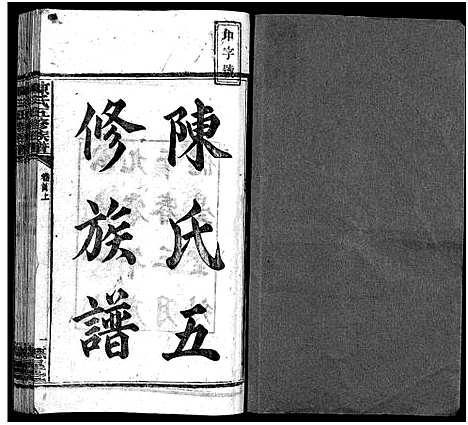 陳氏五
修族譜
字號
陳氏五修族譜
卷首上